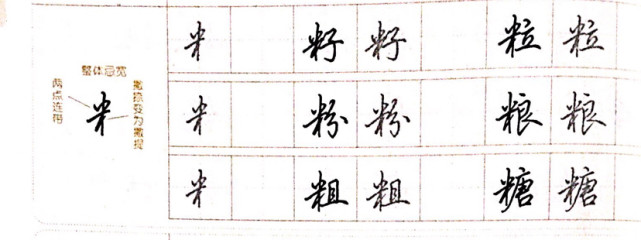 整体忌宽
两点连带
米
撇捺变为撇提
米 籽 籽 粒 粒
米 粉 粉 粮 粮
米 粗 粗 糖 糖